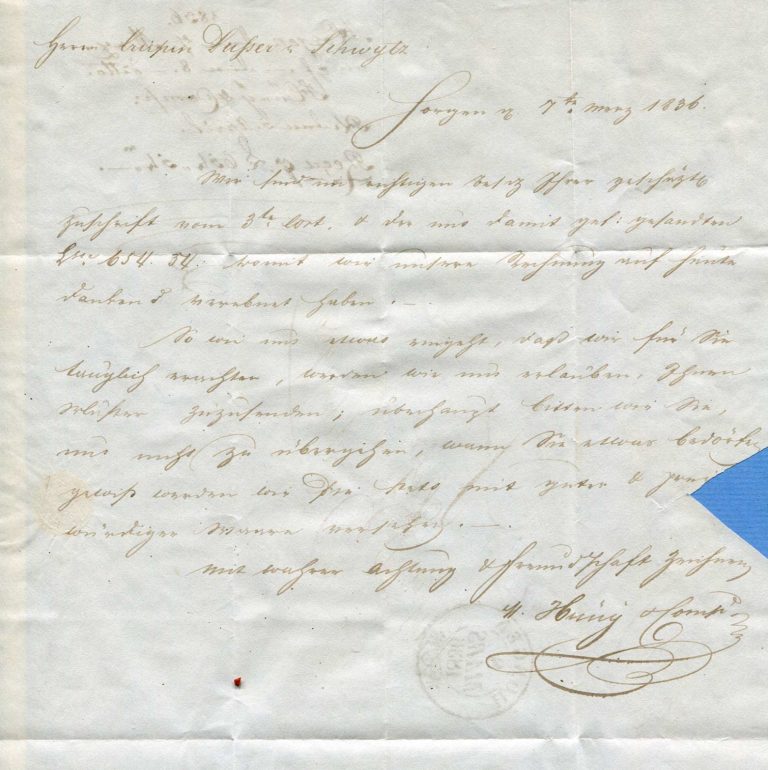 Herrn Crispin Dusser in Schwytz
Horgen d. 7te Merz 1836.
Wir sind im richtigen Besiz Ihrer geschäzte
Zuschrift vom 3te Cort. & der uns damit gesandten
654. 34. womit wir unsere Rechnung auf heute
dankend verebnet haben. —
So wie uns etwas eingeht, dass wir für Sie
tauglich erachten, werden wir uns erlauben, Ihnen
Muster zuzusenden; überhaupt bitten wir Sie,
uns nicht zu übergehen, wann Sie etwas bedörfen
gewiss werden wir Sie stets mit guter & preis
würdiger Waare versehen. —
Mit wahrer Achtung & Freundschaft zeichnen
Hüni & Comp.